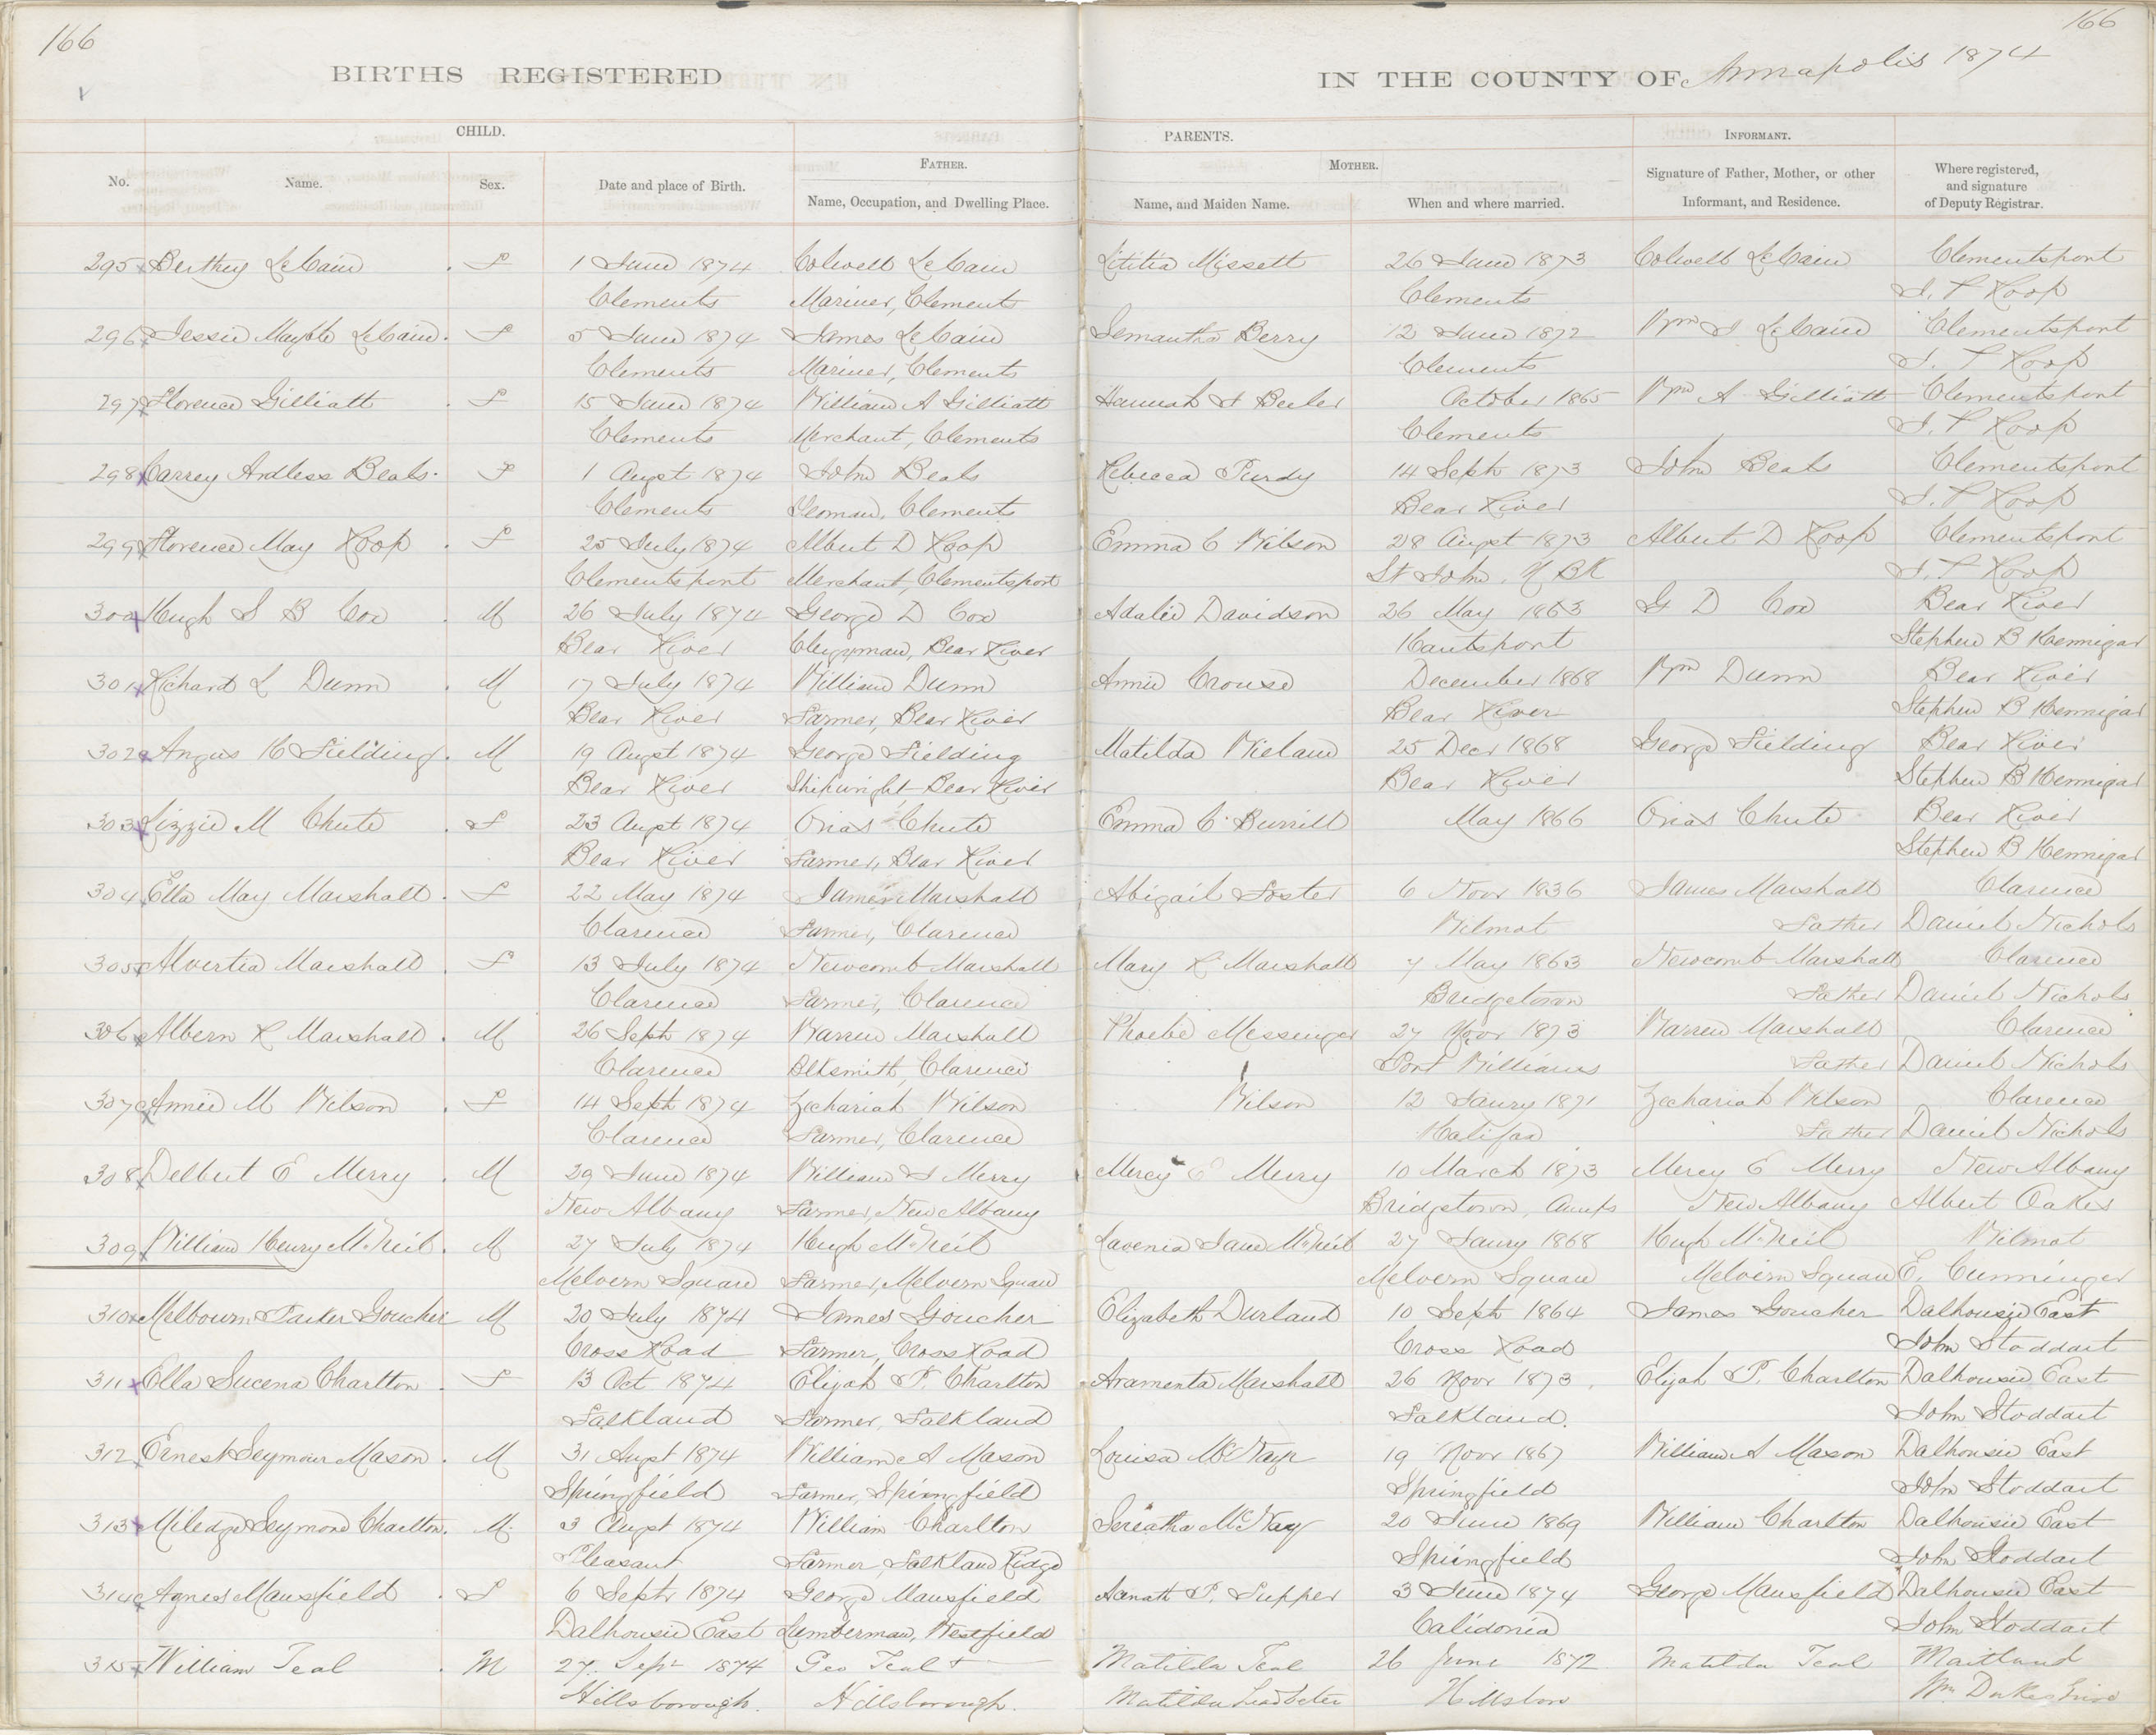 166
166
BIRTHS REGISTERED
IN THE COUNTY OF Annapolis 1874
CHILD.
PARENTS.
INFORMANT.
FATHER.
MOTHER.
No.
Name.
Sex.
Date and place of Birth.
Name, Occupation, and Dwelling Place.
Name, and Maiden Name.
When and where married.
Signature of Father, Mother, or other
Informant, and Residence.
Where registered,
and signature
of Deputy Registrar.
295 Berthey LeCain F 1 June 1874 Colwell LeCain Letitia Missett 26 June 1873 Colwell LeCain Clementsport
Clements Mariner, Clements Clements Roop
296 Jessie LeCain F 5 June 1874 James LeCain Semantha Berry 12 June 1872 Wm LeCain Clementsport
Clements Mariner, Clements Clements Roop
297 Florence Gilliatt F 15 June 1874 William A Gilliatt Hannah Beeler October 1865 Wm A Gilliatt Clementsport
Clements Merchant, Clements Clements Roop
298 Carrey Andless Beals F 1 Augst 1874 John Beals Rebecca Purdy 14 Sept 1873 John Beals Clementsport
Clements Yeoman, Clements Bear River Roop
299 Florence May Roop F 25 July 1874 Albert D Roop Emma C Wilson 28 Augst 1873 Albert D Roop Clementsport
Clementsport Merchant, Clementsport St John, N BK Roop
300 Hugh S B Cox M 26 July 1874 George D Cox Adalie Davidson 26 May 1863 G D Cox Bear River
Bear River Clergyman, Bear River Hantsport Stephen B Hennigar
301 Richard L Dunn M 17 July 1874 William Dunn Annie Crouse December 1868 Wm Dunn Bear River
Bear River Farmer, Bear River Bear River Stephen B Hennigar
302 Angus H Fielding M 19 Augst 1874 George Fielding Matilda 25 Decr 1868 George Fielding Bear River
Bear River Shipwright Bear River Bear River Stephen B Hennigar
303 Lizzie M Chute F 23 Augst 1874 Orias Chute Emma C. Burrill May 1866 Orias Chute Bear River
Bear River Farmer, Bear River Stephen B Hennigar
304 Ella May Marshall F 22 May 1874 James Marshall Abigail Foster 6 Novr 1836 James Marshall Clarence
Clarence Farmer, Clarence Wilmot Father Daniel Nichols
305 Alvertia Marshall F 13 July 1874 Newcomb Marshall Mary R Marshall 7 May 1863 Newcomb Marshall Clarence
Clarence Farmer, Clarence Bridgetown Father Daniel Nichols
306 Albern R Marshall M 26 Sept 1874 Warren Marshall Phoebe Messenger 27 Novr 1873 Warren Marshall Clarence
Clarence Blksmith, Clarence Port Williams Father Daniel Nichols
307 Annie M Wilson F 14 Sept 1874 Zechariah Wilson Wilson 12 Jaury 1871 Zechariah Wilson Clarence
Clarence Farmer, Clarence Halifax Father Daniel Nichols
308 Delbert E Merry M 29 June 1874 William Merry Mercy E Merry 10 March 1873 Mercy E Merry New Albany
New Albany Farmer, New Albany Bridgetown, New Albany Albert Oakes
309 William Henry McNeil M 27 July 1874 Hugh McNeil Lavenia Jane McNeil 27 Jaury 1868 Hugh McNeil Wilmot
Melvern Square Farmer, Melvern Square Melvern Square Melvern Square E. Cunninger
310 Melbourn Parker Goucher M 20 July 1874 James Goucher Elizabeth Durland 10 Sept 1864 James Goucher Dalhousie East
Cross Road Farmer, Cross Road Cross Road John Stoddart
311 Ella Sucena Charlton F 13 Oct 1874 Elijah P. Charlton Aramenta Marshall 26 Novr 1873 Elijah P. Charlton Dalhousie East
Falkland Farmer, Falkland Falkland. John Stoddart
312 Ernest Seymour Mason M 31 Augst 1874 William A Mason Louisa 19 Novr 1867 William A Mason Dalhousie East
Springfield Farmer, Springfield Springfield John Stoddart
313 Miledge Seymond Charlton M. 3 Augst 1874 William Charlton McNay 20 June 1869 William Charlton Dalhousie East
Pleasant Farmer, Falkland Ridge Springfield John Stoddart
314 Agnes Mansfield F 6 Septr 1874 George Mansfield P. Supper 3 June 1874 George Mansfield Dalhousie East
Dalhousie East Lumberman, Westfield Calidonia John Stoddart
315 William Teal M 27 Sept 1874 Geo Teal Matilda Teal 26 June 1872 Matilda Teal Maitland
Hillsborough. Hillsborough. Matilda Hillsboro Wm